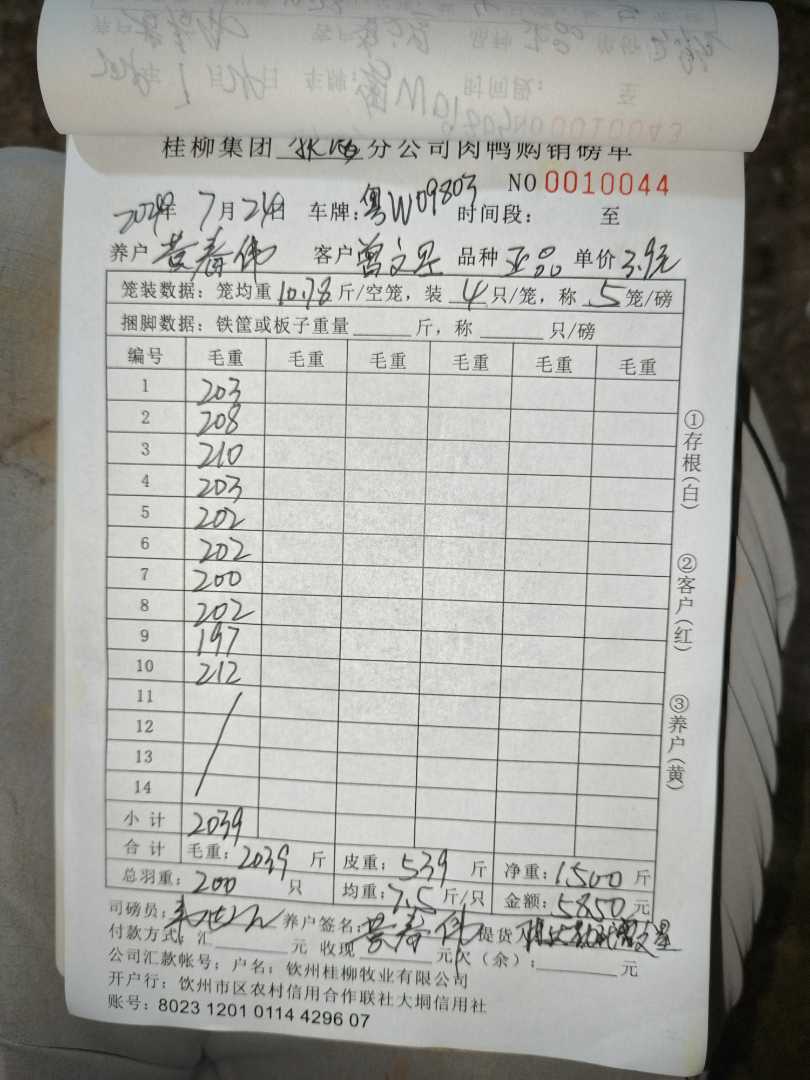 0010043
桂柳集团 分公司肉鸭购销磅单
NO 0010044
2024年 7月24日 车牌:粤W09803 时间段: 至
养户 黄春伟 客户 曾文星 品种 正品 单价 3.9元
笼装数据:笼均重 10.78 斤/空笼,装 4 只/笼,称 5 笼/磅
捆脚数据:铁筐或板子重量 斤,称 只/磅
编号 毛重 毛重 毛重 毛重 毛重 毛重
1 203
2 208
3 210
4 203
5 202
6 202
7 200
8 202
9 197
10 212
11
12
13
14
小计 2039
合计 毛重:2039 斤 皮重:539 斤 净重:1500 斤
总羽重:200 只 均重:7.5 斤/只 金额:5850 元
司磅员: 养户签名:黄春伟 提货人 曾文星
付款方式:汇 元 收现 元欠(余): 元
公司汇款帐号:户名:钦州桂柳牧业有限公司
开户行:钦州市区农村信用合作联社大垌信用社
账号:8023 1201 0114 4296 07
①存根(白)
②客户(红)
③养户(黄)